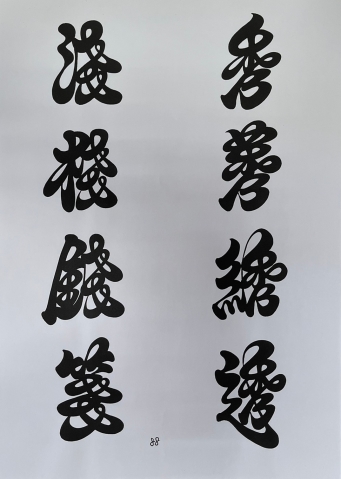 秀莠綉透
淺棧錢箋
88